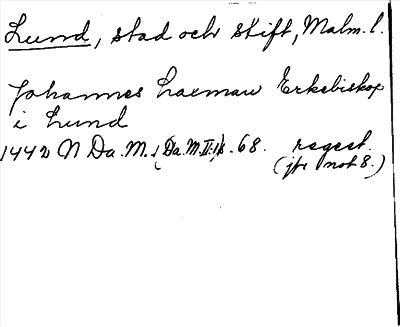 Lund, stad och stift, Malm. l.
Johannes Laxman Erkebiskop
i Lund
1442 N Da. M. 1 (Da. M. II: 1) s. 68. regest.
(jfr not 8.)